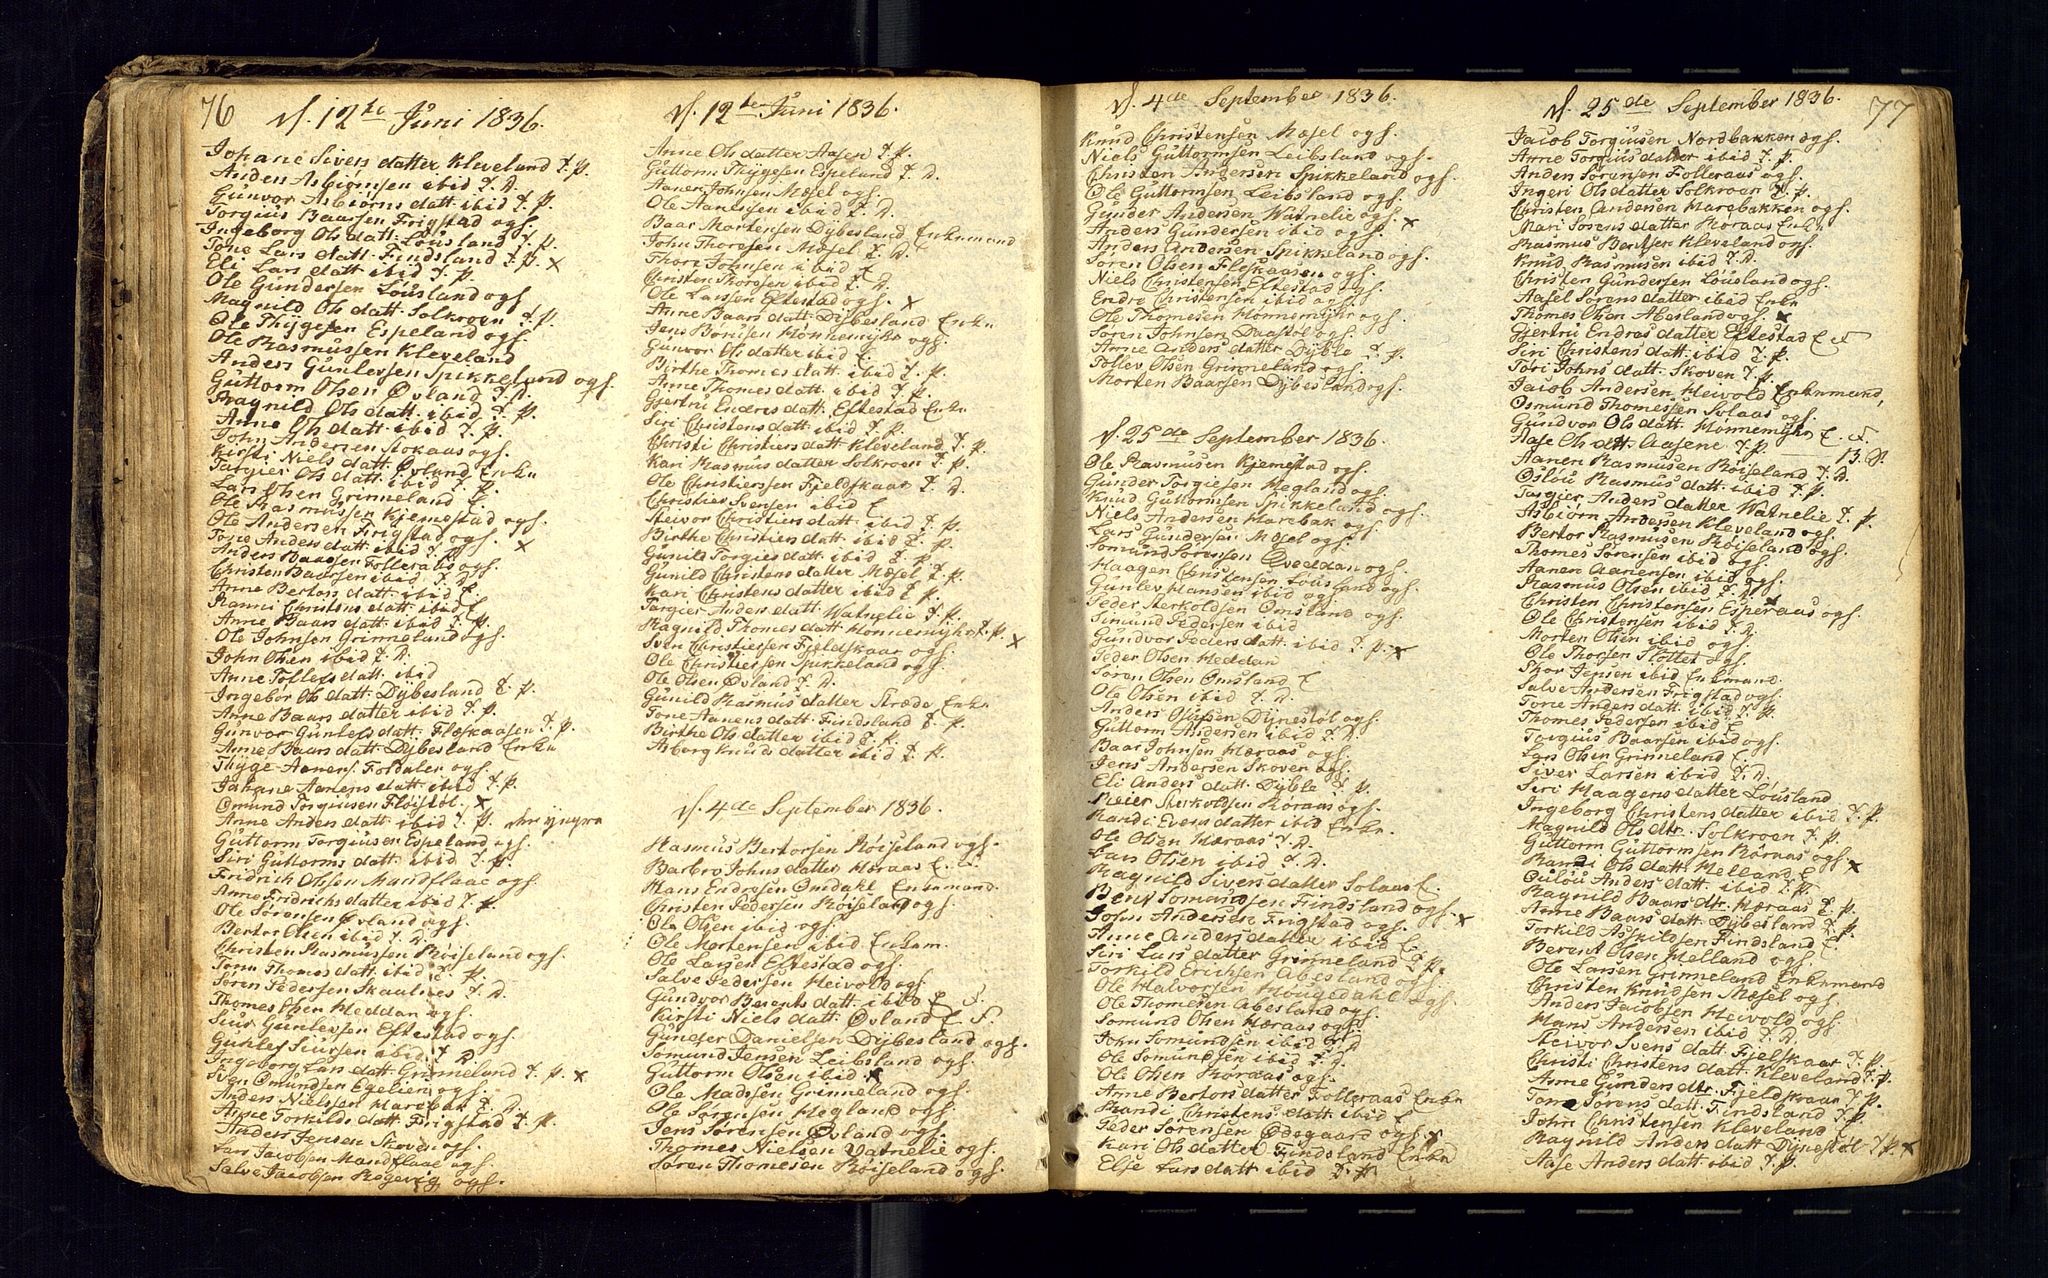 76
d. 12te Juni 1836.
Johane Sivers datter Kleveland T. P.
Anden Asbiørnsen ibid T. D.
Gunvor Asbiørns datt ibid T. P.
Torgius Baarsen Frigstad ogh.
Ingeborg Ols datt. Lousland T. P.
Tone Lars datt. Findsland T. P. x
Eli Lars datt ibid T. P.
Ole Gundersen Lousland ogh
Magnild Ols datt Solkroen T. P.
Ole Thygesen Espeland ogh.
Ole Rasmussen Kleveland
Anders Gunlevsen Spikkeland ogh.
Guttorm Olsen Øvland T. D.
Ragnild Ols datt. ibid T. P.
Anne Ols datt ibid T. P.
John Andersen Stokaas ogh.
Kirsti Niels datt. Øvland Enke
Targier Ols datt ibid T. P.
Lars Olsen Grinneland E
Ole Rasmussen Kjemestad ogh.
Ole Andersen Frigstad ogh.
Tone Anders datt ibid T. P. x
Anders Baarsen Folleraas ogh.
Christen Baarsen ibid T. D.
Anne Bertors datt ibid E
Ranni Christens datt ibid E
Anne Baars datt ibid T. P.
Ole Johnsen Grinneland ogh.
John Olsen ibid T. D.
Anne Follefs datt ibid
Ingebor Ols datt. Dybesland T. P.
Anne Baars datter ibid T. P.
Gunvor Gunlefs datt. Flæskaasen T. P.
Anne Baars datt Dybesland Enke
Thyge Aanens. Foldalen ogh.
Johane Aanens datt ibid T. P.
Omund Torgiusen Fløistøl x
Anne Anders datt ibid T. P.
Guttorm Torgiusen Espeland ogh.
Siri Guttorms datt ibid T. P.
Fridrich Olssen Mandflaae ogh.
Anne Fridrichs datter ibid T. P.
Ole Sørensen Øvland ogh.
Bertor Olsen ibid T. D.
Christen Rasmussen Røiseland ogh.
Tone Thomes datt ibid T. P.
Søren Pedersen Skaalnes T. D.
Thomes Olsen Heddan ogh.
Siur Gunlevsen Eftestad ogh.
Gunlef Siursen ibid T. D.
Ingeborg Lars datt Grinneland T. P. x
Sven Omundsen Egelien ogh.
Anders Nielssen Marebak T. D.
Anne Torkilds datt Frigstad T. P.
Anders Jensen Skoven ogh.
Lars Jacobsen Mandflaae ogh
Salve Jacobsen Røgevig ogh.
d. 12te Juni 1836.
Anne Ols datter Aasen T. P.
Guttorm Thygesen Espeland T. D.
Aanen Johnsen Mæsel ogh.
Ole Aanensen ibid T. D.
Baar Mortensen Dybesland Enkemand
John Thoresen Mæsel T. D.
Thore Johnsen ibid E
Christen Thoresen ibid T. D.
Ole Larssen Eftestad ogh. x
Anne Baars datt Dybesland Enke
Jens Børulsen Honnemyhr ogh.
Gunvor Ols datter ibid E.
Birthe Thomes datt. ibid T. P.
Anne Thomes datt ibid T. P.
Gjertru Endres datt. Eftestad Enke
Siri Christens datt ibid T. P.
Christi Christiers datt Kleveland T. P.
Kari Rasmus datter Solkroen T. P.
Ole Christierssen Fjeldskaar T. D.
Christier Svensen ibid E
Steivor Christiers datt ibid T. P.
Birthe Christiers datt ibid T. P.
Gunild Torgies datt ibid T. P.
Gunild Christens datter Mæsel T. P.
Kari Christens datter ibid T. P.
Targier Anders datt Watnelie T. P.
Magnild Thomes datt Honnemyhr T. P. x
Sven Christiersen Fjeldskaar ogh.
Ole Christiersen Spikkeland ogh.
Ole Olsen Øvland T. D.
Gunild Rasmus datter Træde Enke
Tone Aanens datt. Findsland T. P.
Birthe Ols datter ibid T. P.
Asberg Knuds datter ibid T. P.
d. 4de September 1836.
Rasmus Bertorsen Røiseland ogh.
Barbro Johns datter Hæraas E. F.
Hans Endresen Omdahl Enkemand.
Christen Pedersen Røiseland ogh.
Ole Olsen ibid ogh.
Ole Mortensen ibid Enkem.
Ole Larsen Eftestad ogh.
Salve Pedersen Heivold ogh.
Gundvor Berents datt. ibid E. F.
Kirsti Niels datt. Øvland E. F.
Gunder Danielsen Dybesland ogh.
Tomund Jensen Leibsland ogh.
Guttorm Olsen ibid x
Ole Madssen Grinneland ogh.
Ole Sørensen Hegland ogh.
Jens Sørensen Øvland ogh.
Thomes Nielsen Vatnelie ogh.
Søren Thomesen Røiseland ogh.
d. 4de September 1836.
Knud Christensen Mæsel ogh.
Niels Guttormsen Leibsland ogh.
Christen Andersen Spikkeland ogh.
Ole Guttormsen Leibsland ogh.
Gunder Andersen Watnelie ogh.
Anders Gundersen ibid ogh. x
Anders Andersen Spikkeland ogh.
Søren Olsen Fleskaasen ogh.
Niels Christensen Eftestad ogh.
Endre Christensen ibid ogh.
Ole Thomesen Honnemyhr ogh.
Søren Johnsen Daastøl ogh.
Anne Anders datter Dyble T. P.
Follev Olsen Grinneland ogh.
Morten Baarsen Dybesland ogh.
d. 25de September 1836.
Ole Rasmusen Kjemestad ogh.
Gunder Torgiesen Hegland ogh.
Knud Guttormsen Spikkeland ogh.
Niels Andersen Marebak ogh.
Lars Gundersen Mæsel ogh.
Tomund Sørensen Sveddan ogh.
Haagen Christensen Lousland ogh.
Gunlev Hansen ibid ogh.
Peder Sterkoldsen Omsland ogh.
Simund Pedersen ibid
Gundvor Peders datt. ibid T. P. x
Peder Olsen Heddan
Søren Olsen Omsland E
Ole Olsen ibid T. D.
Anders Olufsen Dynestøl ogh.
Guttorm Andersen ibid T. D.
Baar Johnsen Hæraas ogh.
Jens Andersen Skoven ogh.
Eli Anders datt. Dyble T. P.
Reier Sterkoldsen Røraas ogh.
Randi Evens datter ibid Enke.
Ole Olsen Hæraas T. D.
Lars Olsen ibid T. D.
Magnild Sivers datter Solaas E.
Bent Tomundsen Findsland ogh.
John Andersen Frigstad ogh. x
Anne Anders datter ibid E.
Siri Lars datter Grinneland T. P.
Torkild Erichsen Abesland ogh.
Ole Halvorsen Hougedahl ogh.
Ole Thomesen Abesland ogh.
Tomund Olsen Hæraas ogh.
John Tomundsen ibid T. D.
Ole Tomundsen ibid T. D.
Ole Olsen Røraas ogh.
Anne Bertors datter Folleraas Enke
Randi Christens datt ibid E
Peder Sørensen Ødegaard ogh. x
Kari Ols datter Findsland Enke
Else Lars datt ibid T. P.
d. 25de September 1836.
77
Jacob Torgiusen Nordbakken ogh.
Anne Torgius datter ibid T. P.
Anden Sørensen Folleraas ogh.
Ingeri Ols datter Solkroen T. P.
Christen Andersen Marebakken ogh.
Mari Sørens datter Røraas Enke
Rasmus Bentsen Kleveland ogh.
Knud Rasmusen ibid T. D.
Christen Gundersen Lousland ogh.
Aasel Sørens datter ibid Enke
Thomes Olsen Abesland ogh. x
Gjertru Endres datter Eftestad E. F.
Siri Christens datt. ibid T. P.
Tori Johns datt. Skoven T. P.
Jacob Andersen Heivold Enkemand,
Osmund Thomessen Solaas ogh.
Gundvor Ols datt Honnemyhr E. F.
Aase Ols dtt. Aasene T. P. — 13. D.
Aanen Rasmusen Røiseland T. D.
Oslou Rasmus datt. ibid T. P.
Targier Anders datter Watnelie T. P.
Asbiørn Andersen Kleveland ogh.
Bertor Rasmusen Røiseland ogh.
Thomes Sørensen ibid ogh.
Aanen Aanensen ibid ogh.
Rasmus Olsen ibid T. D.
Christen Christensen Esperaas ogh.
Ole Christensen ibid T. D.
Morten Olsen ibid ogh
Ole Thorsen Slottet ogh.
Skor Jensen ibid Enkemand.
Salve Andersen Frigstad ogh.
Tone Anders datt. ibid T. P.
Thomes Pedersen ibid E.
Torgius Baarsen ibid ogh.
Lars Olsen Grinneland E.
Siver Larsen ibid T. D.
Siri Haagens datter Lousland
Ingeborg Christens datter ibid T. P.
Magnild Ols dtr. Solkroen T. P.
Guttorm Guttormsen Røraas ogh.
Randi Ols datt. Helland E x
Oulou Anders datt. ibid T. P.
Ragnild Baars dtr. Hæraas T. P.
Anne Baars datt. Dybesland T. P.
Torkild Askildsen Findsland E
Berent Olsen Helland ogh.
Ole Larsen Grinneland Enkemand
Christen Knudsen Mæsel ogh.
Anders Jacobsen Heivold ogh.
Hans Andersen ibid T. D.
Steivor Svens datt. Fjelskaar T. P.
Christi Christens datt. Kleveland T. P.
Anne Gunders dtr. Fjeldskaar T. P.
Tone Sørens datt. Findsland T. P.
John Christensen Kleveland E
Ragnild Anders datt Dynestøl T. P. x
Aase Anders datt. ibid T. P.